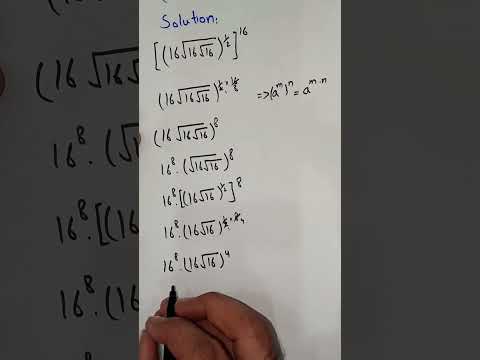 Solution:
[(16√16√16)^½]^16
(16√16√16)^½·16 8 => (a^m)^n = a^m·n
(16√16√16)^8
16^8 . (√16√16)^8
16^8 . [(16√16)^½]^8
16^8 . (16√16)^½·8 4
16^8 . (16√16)^4